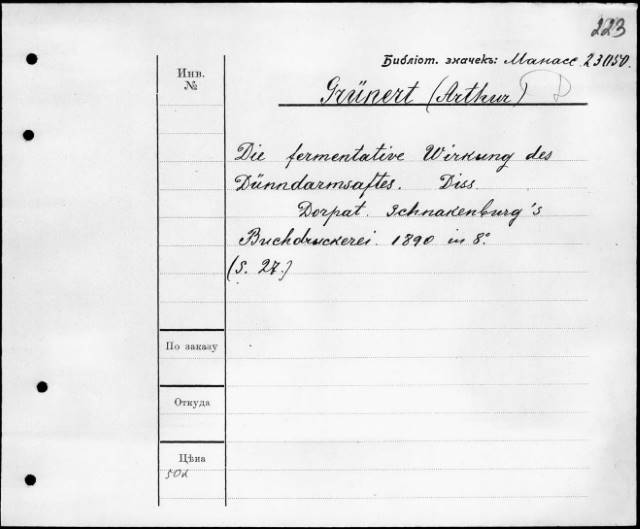 223
Библіот. значекъ: Манасс. 23050.
Инв.
№
Grünert (Arthur)
Die fermentative Wirkung des
Dünndarmsaftes. Diss.
Dorpat. Schnakenburg's
Buchdruckerei. 1890 in 8.°
(S. 27.)
По заказу
Откуда
Цѣна